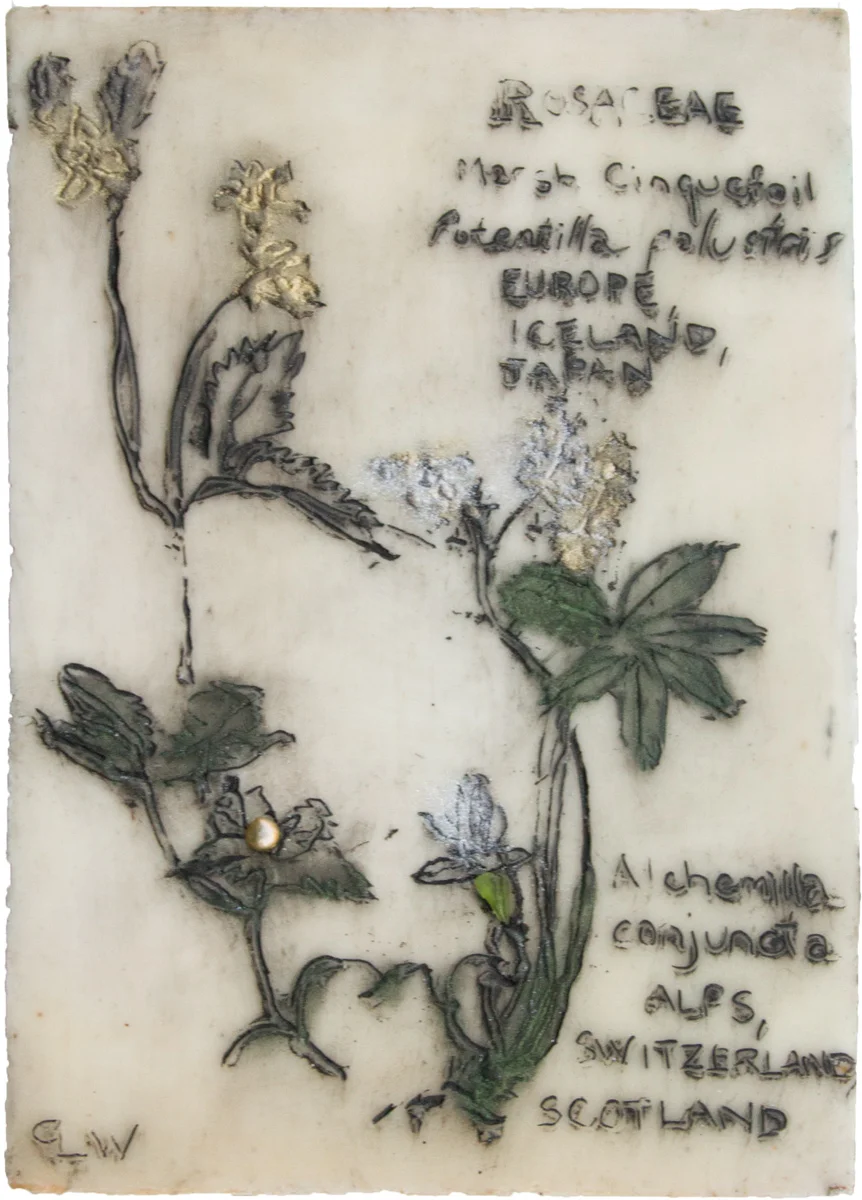 ROSACEAE
Marsh Cinquefoil
Potentilla palustris
EUROPE,
ICELAND,
JAPAN
Alchemilla
conjuncta
ALPS,
SWITZERLAND,
SCOTLAND
CLW